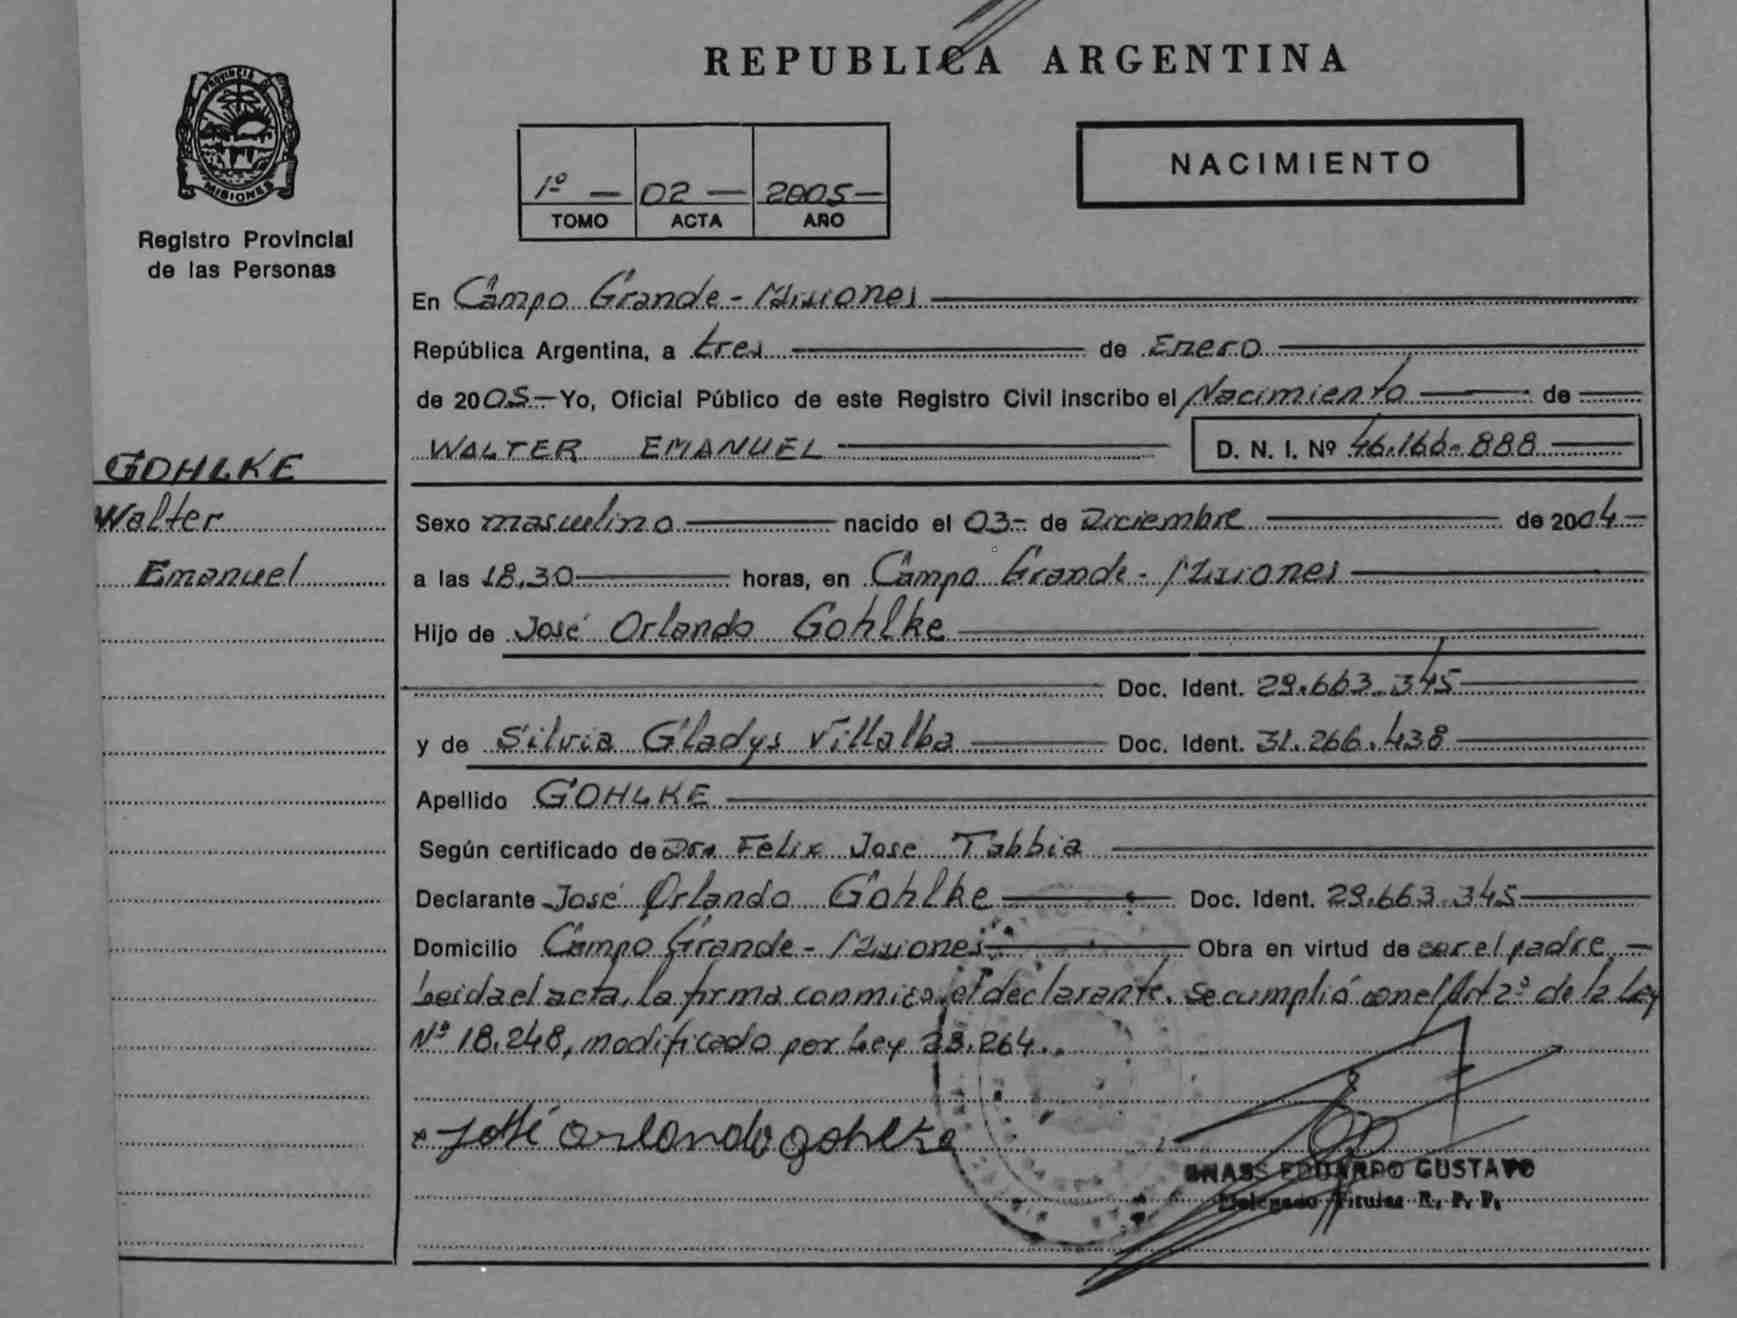 REPUBLICA ARGENTINA
PROVINCIA DE
MISIONES
Registro Provincial
de las Personas
1º — 02 — 2005 —
TOMO ACTA AÑO
NACIMIENTO
En Campo Grande - Misiones
República Argentina, a tres de Enero
de 2005 - Yo, Oficial Público de este Registro Civil inscribo el Nacimiento de
WALTER EMANUEL D. N. I. Nº 46.166.888
GOHLKE
Walter
Emanuel
Sexo masculino nacido el 03 - de Diciembre de 2004 -
a las 18.30 horas, en Campo Grande - Misiones
Hijo de José Orlando Gohlke
Doc. Ident. 29.663.345
y de Silvia Gladys Villalba Doc. Ident. 31.266.438
Apellido GOHLKE
Según certificado de Dr. Felix Jose Tabbia
Declarante José Orlando Gohlke Doc. Ident. 29.663.345
Domicilio Campo Grande - Misiones Obra en virtud de ser el padre, —
Leida el acta, la firma conmigo, el declarante. Se cumplió con el Art 2º de la Ley
Nº 18.248, modificado por Ley 23.264..
José orlando gohlke
EDUARDO GUSTAVO
Delegado Titular R. P. P.